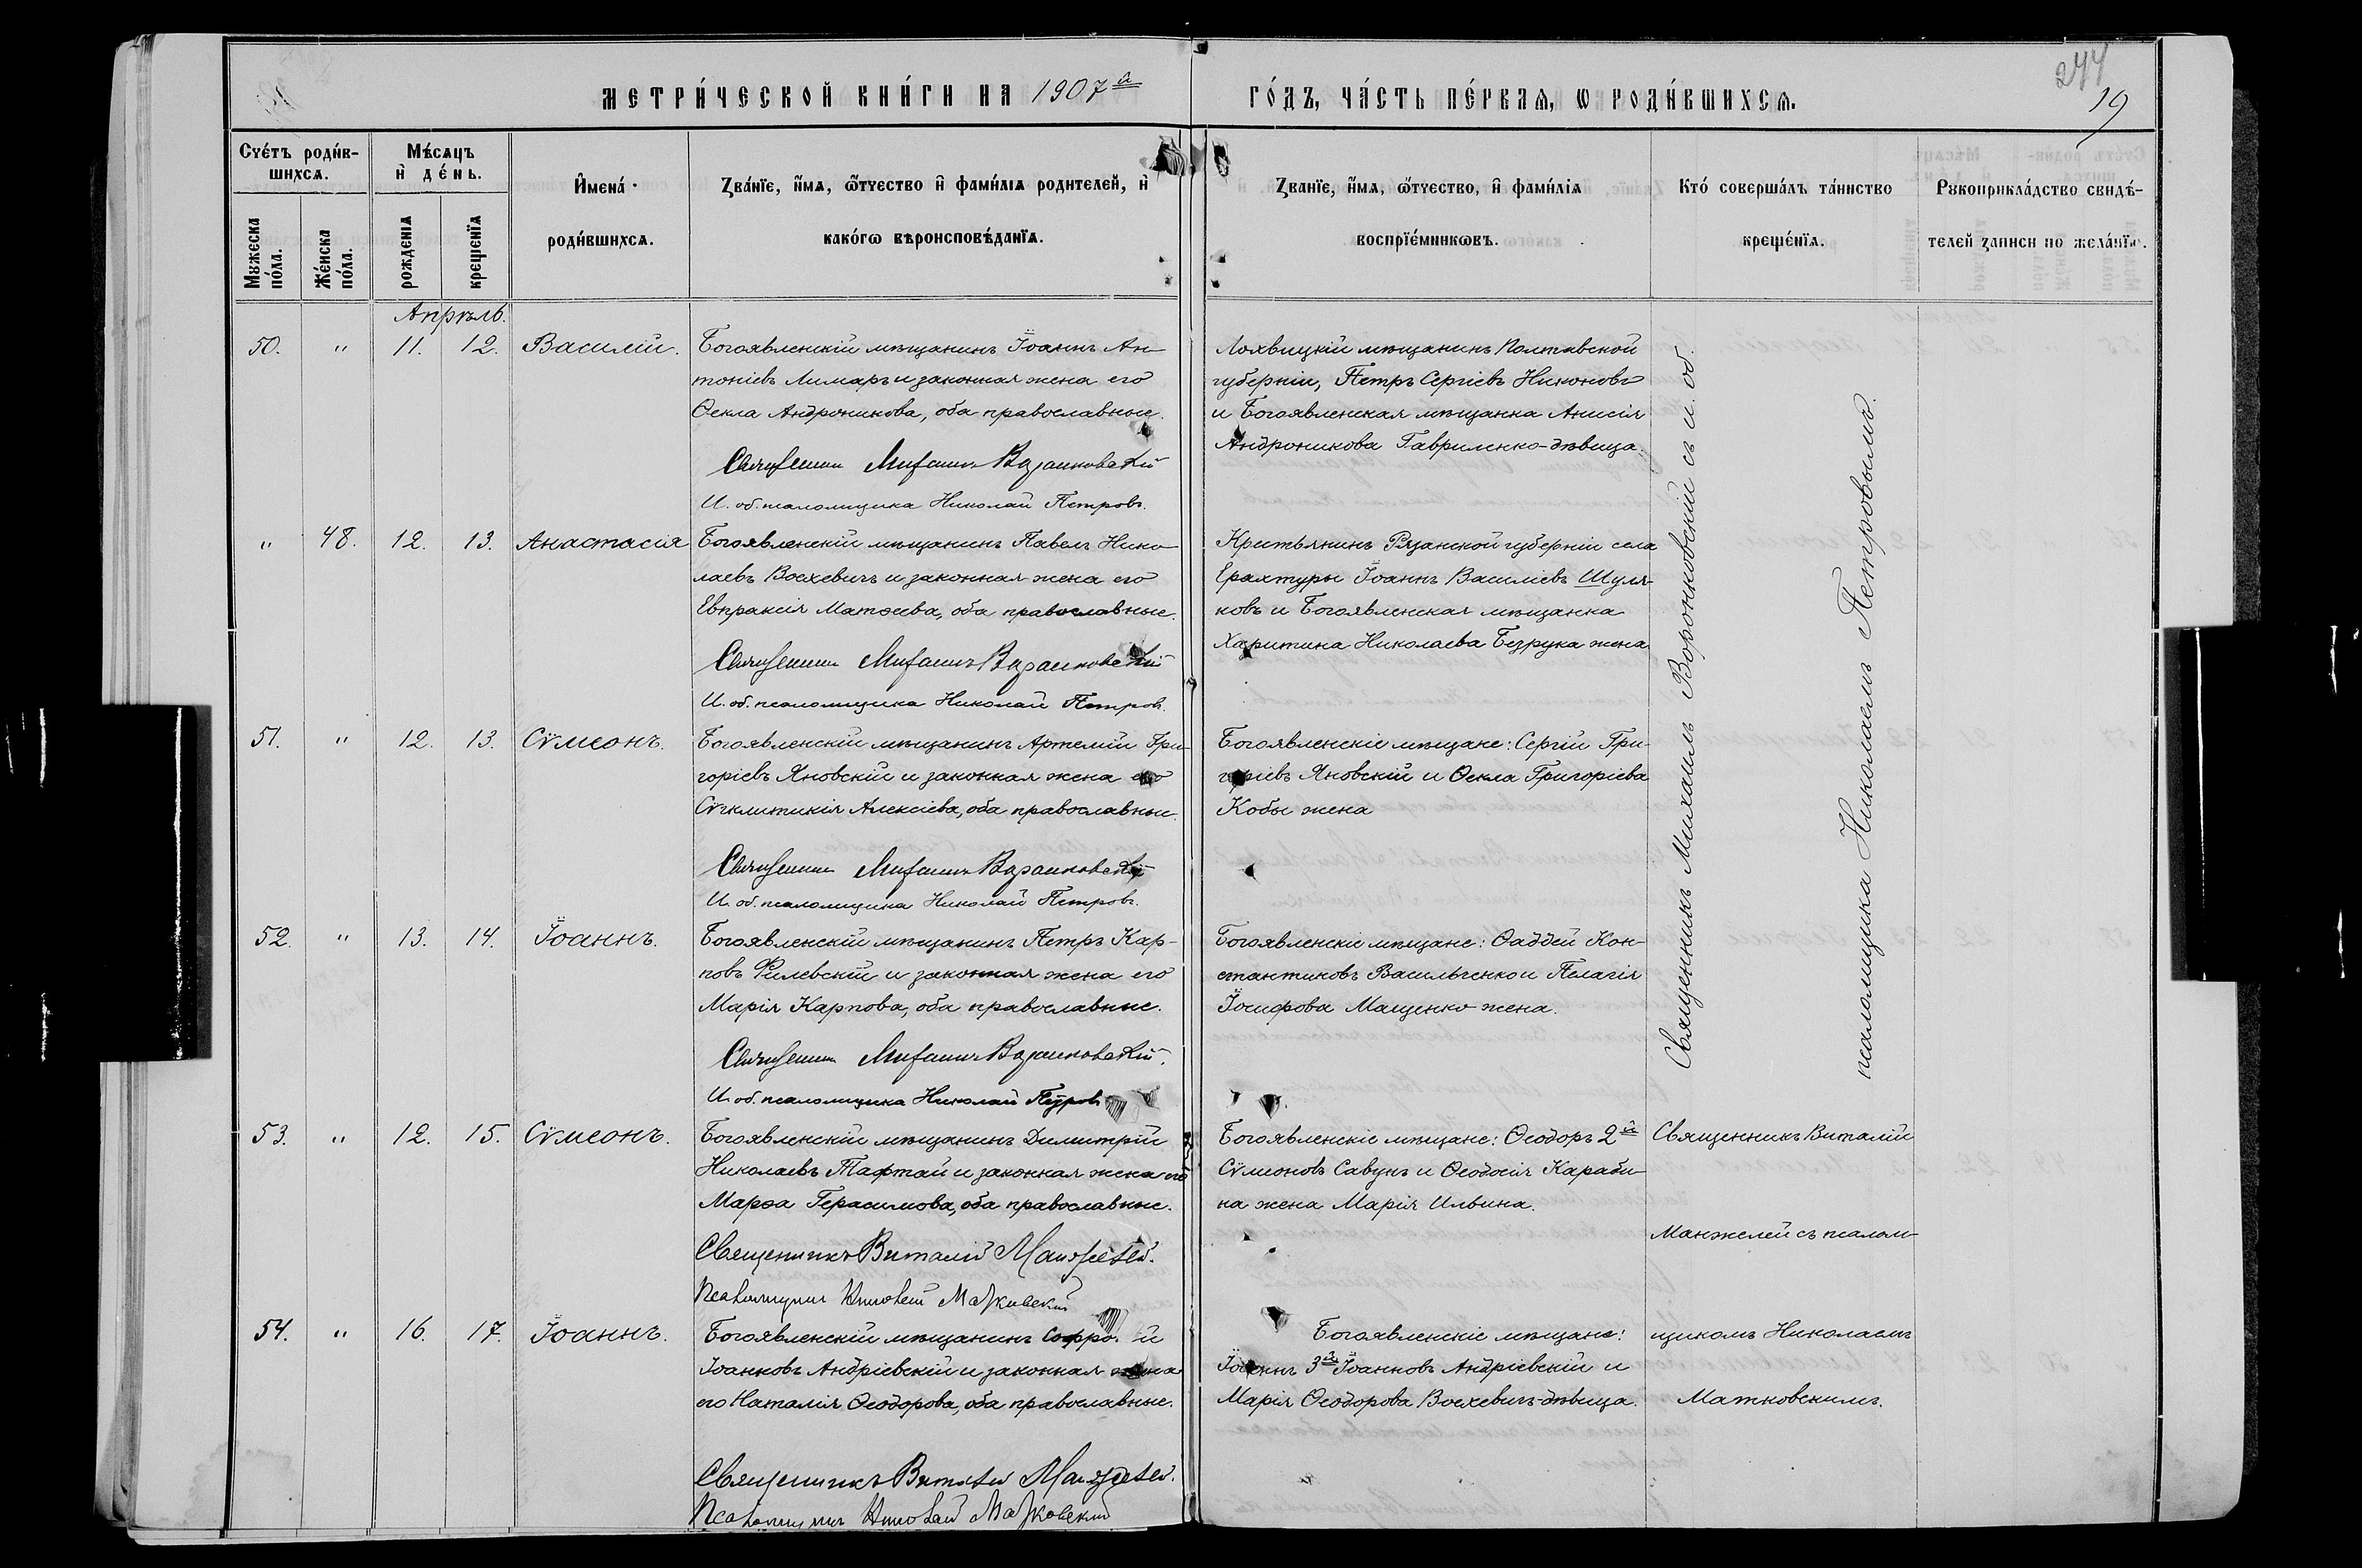 метри́ческой кни́ги на 1907й
го́дъ, ча́сть пе́рвая, ѡ роди́вшихся.
244
19
Счéтъ роди́в-
шихся.
Мужеска
по́ла.
Же́нска
по́ла.
Мѣ́сяцъ
и҆ де́нь.
рожденія
крещенїя
И҆мена́
роди́вшихся.
Зва́нїе, и҆́мя, ѻ҆́тчество и҆ фами́лїя родителей, и҆
како́гѡ вѣроисповѣ́данїя.
Званїе, и҆́мя, ѻ҆́тчество, и҆ фами́лїя
воспрїе́мникѡвъ.
Кто́ соверша́лъ та́инство
креще́нїя.
Рукоприкла́дство свидѣ́-
телей записи по жела́нїю.
Апрѣль.
50. " 11. 12. Василій.
Богоявленскій мѣщанинъ Іоаннъ Ан-
тоніевъ Лимарь и законная жена его
Ѳекла Андроникова, оба православные.
Священникъ Михаилъ Воронковскій
И. об. псаломщика Николай Петровъ.
Лохвицкій мѣщанинъ Полтавской
губерніи, Петръ Сергіевъ Никоновъ
и Богоявленская мѣщанка Анисія
Андроникова Гавриленко-дѣвица.
" 48. 12. 13. Анастасія
Богоявленскій мѣщанинъ Павелъ Нико-
лаевъ Восхевичъ и законная жена его
Евпраксія Матѳеева, оба православные.
Священникъ Михаилъ Воронковскій
И. об. псаломщика Николай Петровъ.
Крестьянинъ Рязанской губерніи села
Ерахтуры Іоаннъ Василіевъ Шуля-
ковъ и Богоявленская мѣщанка
Харитина Николаева Безрука жена.
51. " 12. 13. Сѵмеонъ.
Богоявленскій мѣщанинъ Артемій Гри-
горіевъ Яновскій и законная жена его
Сѵнклитикія Алексіева, оба православные.
Священникъ Михаилъ Воронковскій
И. об. псаломщика Николай Петровъ.
Богоявленскіе мѣщане: Сергій Гри-
горіевъ Яновскій и Ѳекла Григоріева
Кобы жена
52. " 13. 14. Іоаннъ.
Богоявленскій мѣщанинъ Петръ Кар-
повъ Филевскій и законная жена его
Марія Карпова, оба православные.
Священникъ Михаилъ Воронковскій.
И. об. псаломщика Николай Петровъ
Богоявленскіе мѣщане: Ѳаддей Кон-
стантиновъ Васильченко и Пелагія
Іосифова Мащенко жена.
Священникъ Михаилъ Воронковскій съ и. об.
псаломщика Николаемъ Петровымъ.
53. " 12. 15. Сѵмеонъ.
Богоявленскій мѣщанинъ Димитрій
Николаевъ Тафтай и законная жена его
Марѳа Герасимова, оба православные.
Священникъ Виталій Манжелей.
Псаломщикъ Николай Матковскій
Богоявленскіе мѣщане: Ѳеодоръ 2й
Сѵмеоновъ Савунъ и Ѳеодосія Караби-
на жена Марія Ильина.
54. " 16. 17. Іоаннъ.
Богоявленскій мѣщанинъ Софро й
Іоанновъ Андріевскій и законная жена
его Наталія Ѳеодорова, оба православные.
Священникъ Виталій Манжелей.
Псаломщикъ Николай Матковскій
Богоявленскіе мѣщане:
Іоаннъ 3й Іоанновъ Андріевскій и
Марія Ѳеодорова Восхевичъ-дѣвица.
Священникъ Виталій
Манжелей съ псалом-
щикомъ Николаемъ
Матковскимъ.